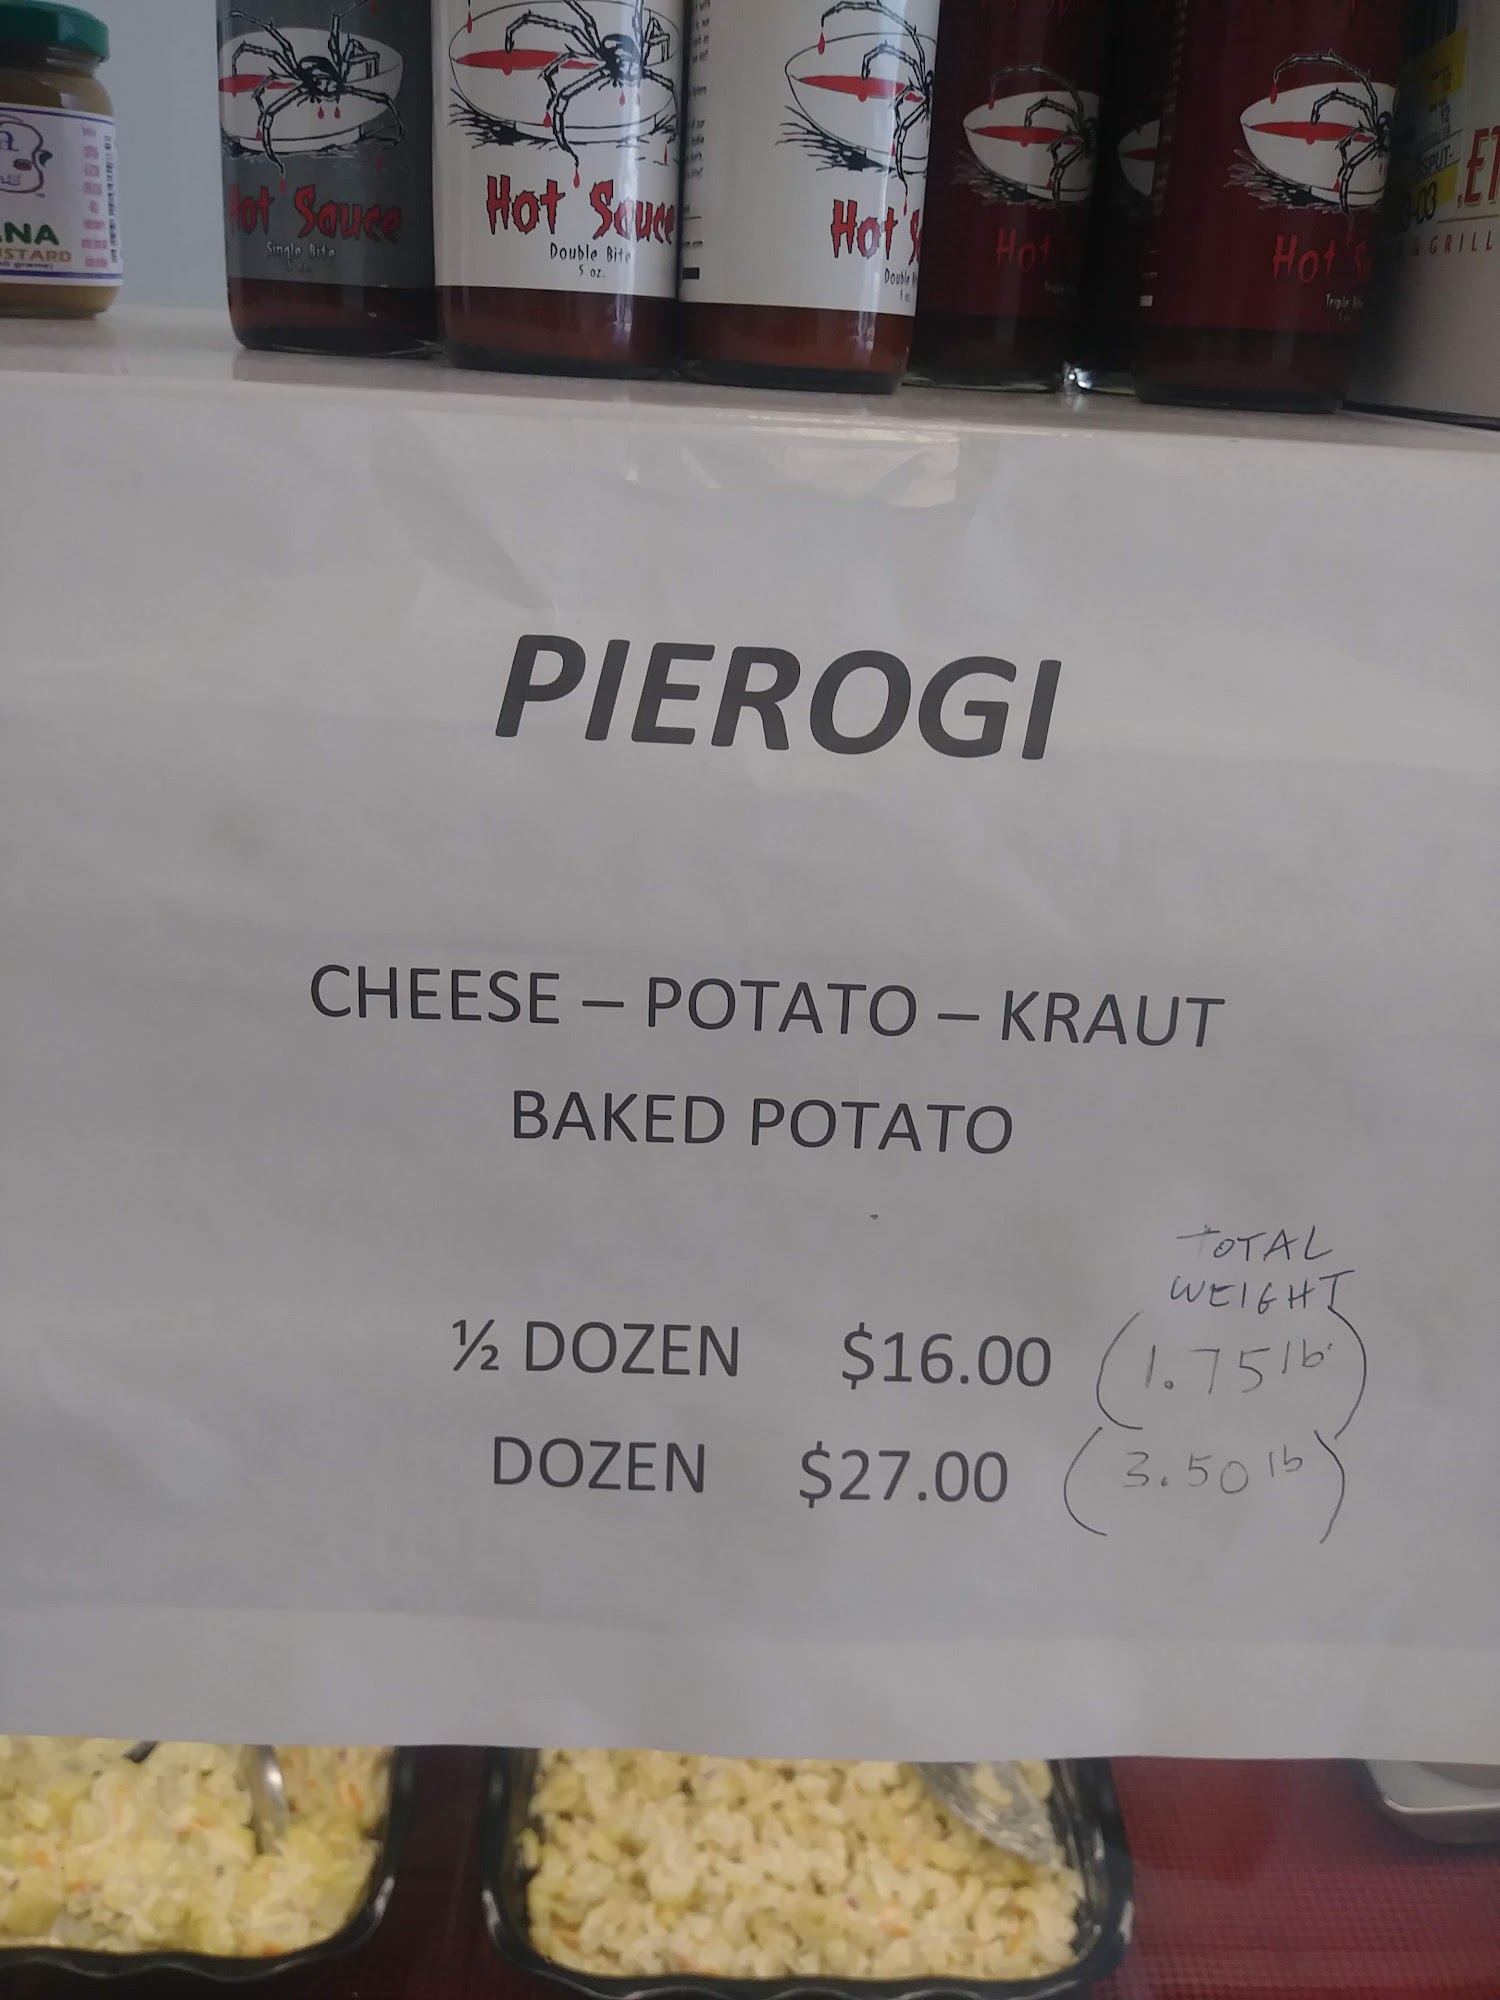 Hot Sauce
Single Bite
Hot Sauce
Double Bite
5 oz.
Hot
Double
Hot
Hot
Triple
& GRILL
PIEROGI
CHEESE – POTATO – KRAUT
BAKED POTATO
TOTAL
WEIGHT
½ DOZEN $16.00 (1.75 lb.)
DOZEN $27.00 (3.50 lb)